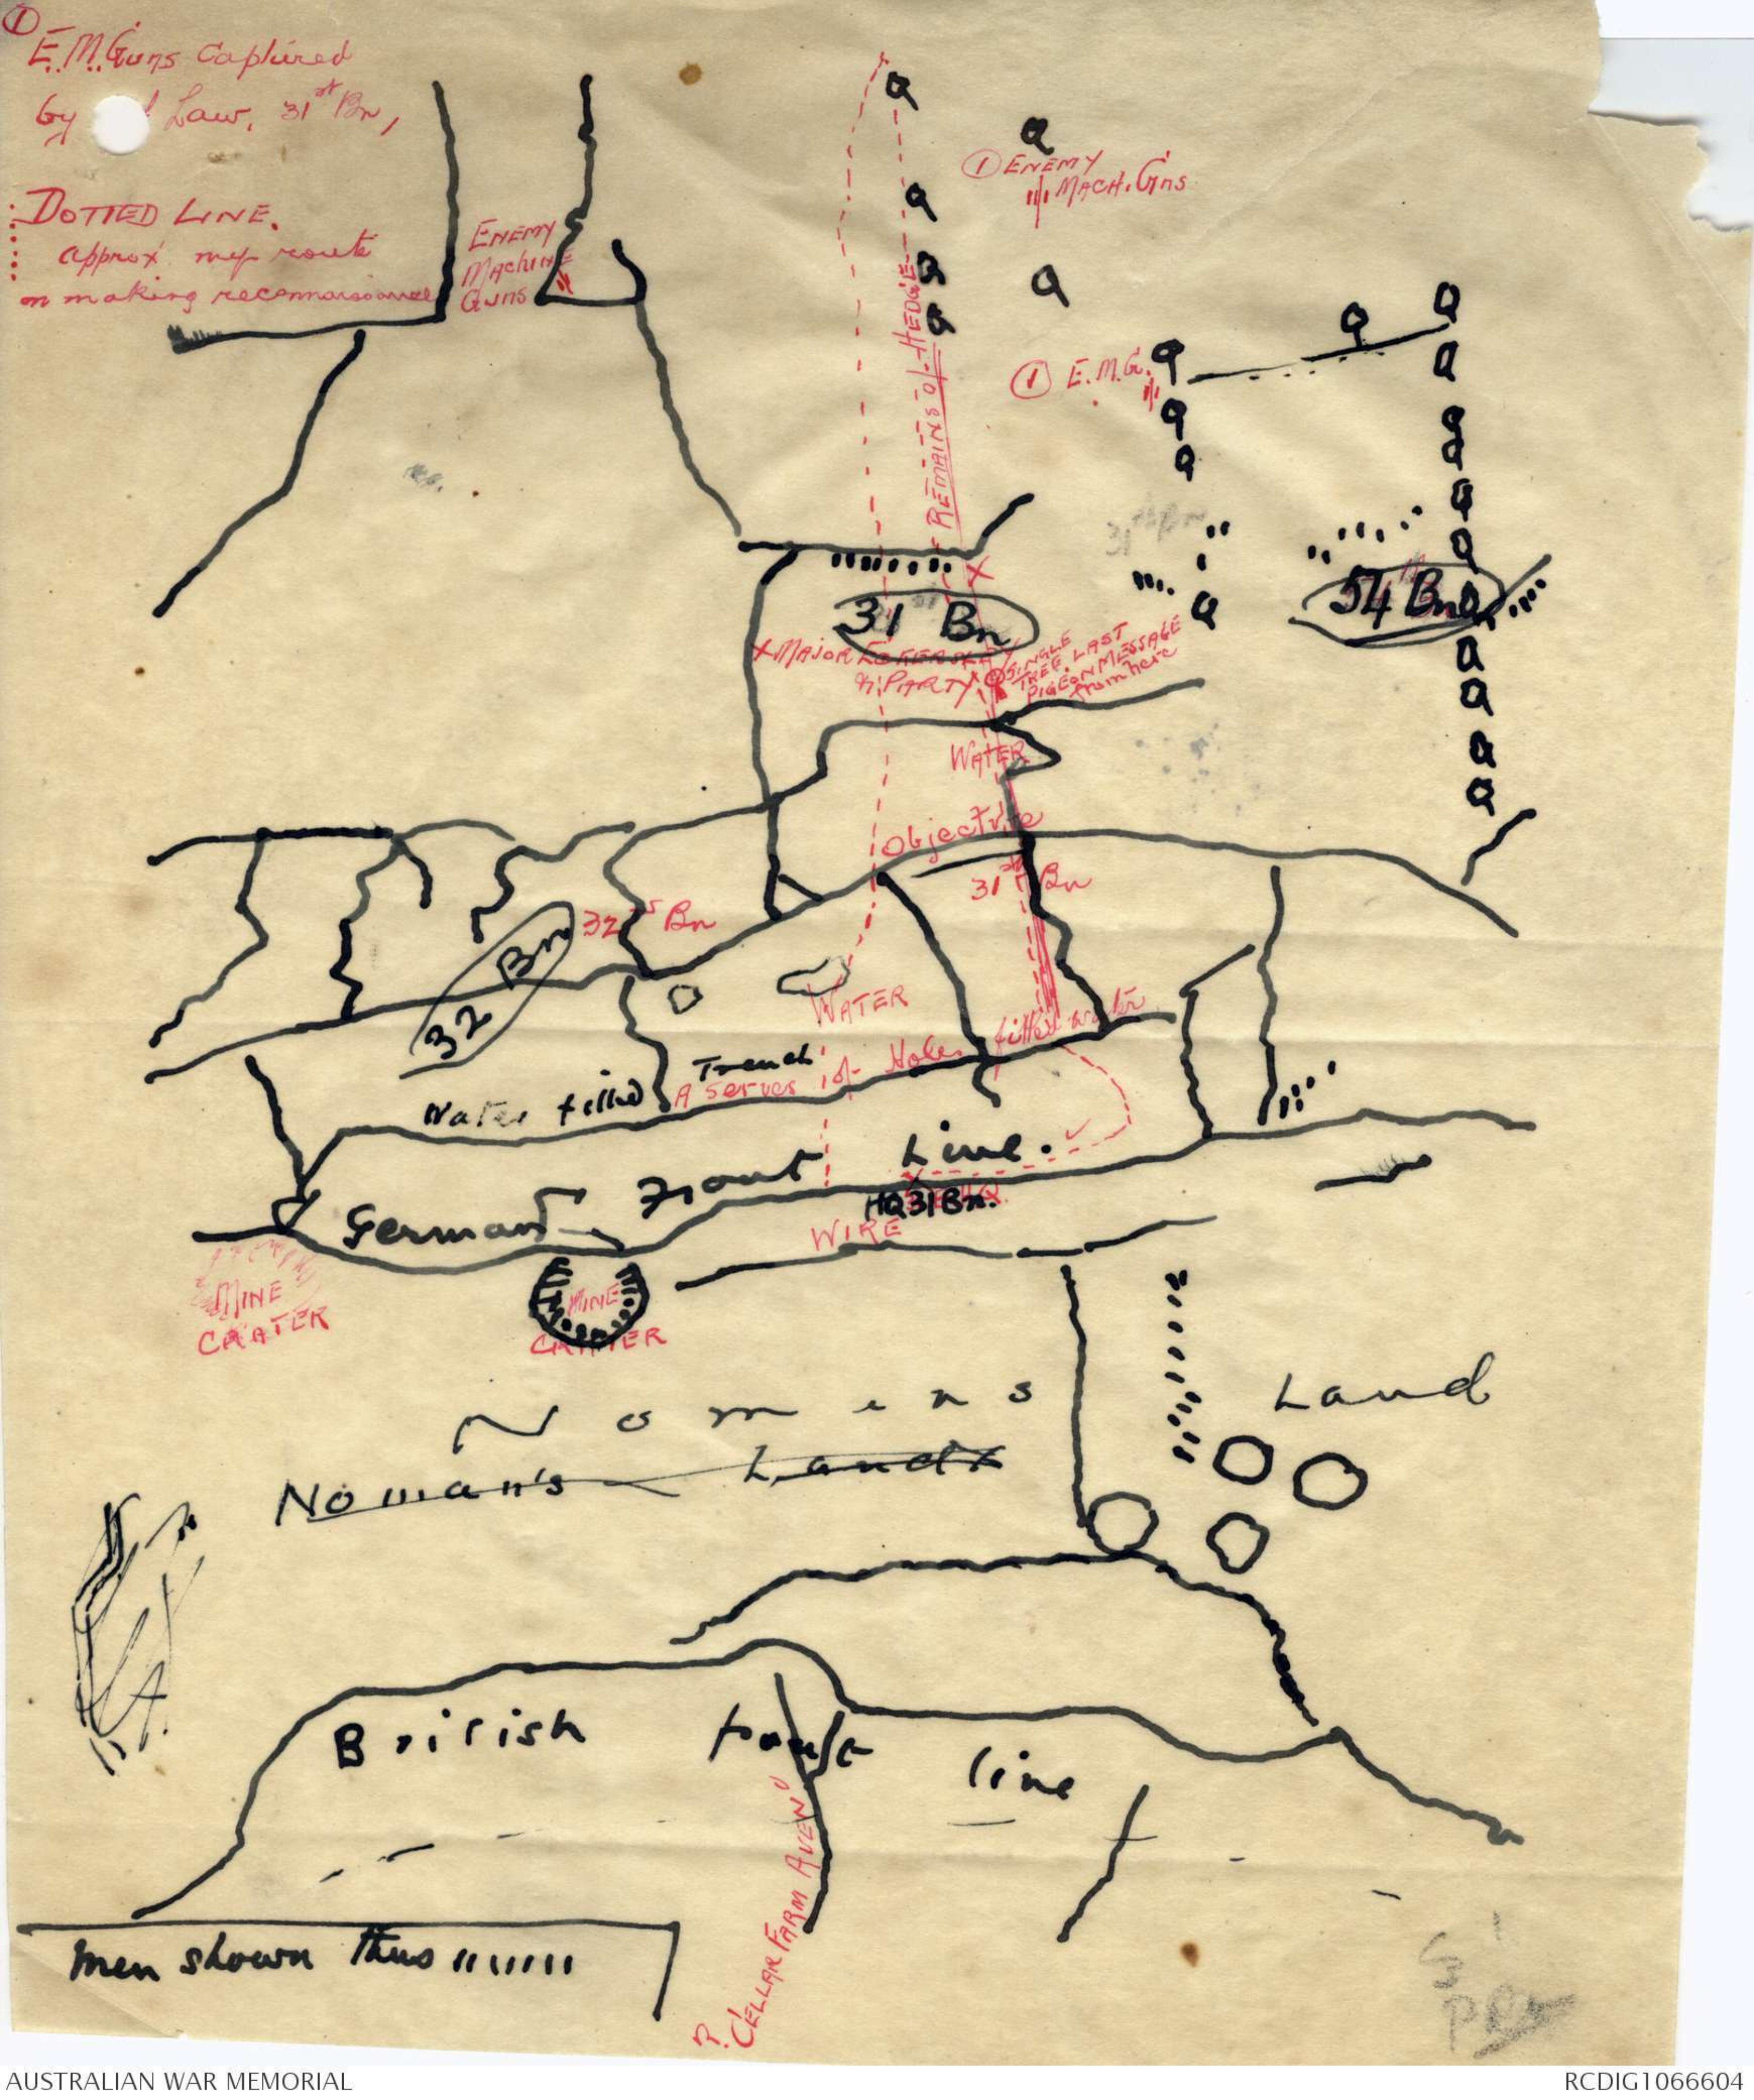 ①
E.M.Guns Captured
by Law, 31st Bn,
DOTTED LINE.
approx. my route
on making reconnaissance
ENEMY
MACHINE
GUNS
① ENEMY
MACH. Gns
① E.M.G.
REMAINS of HEDGE
31 Bn
54 Bn
x MAJOR
& PARTY
SINGLE
TREE. LAST
PIGEON MESSAGE
from here
WATER
Objective
31st Bn
32 Bn
32nd Bn
WATER
Water filled Trench
A Series of Holes filled water
German Front Line.
HQ 31 Bn.
WIRE
MINE
CRATER
MINE
CRATER
No mens Land
No man's Land
British front line
CELLAR FARM AVEN
men shown thus ıııııııı
AUSTRALIAN WAR MEMORIAL
RCDIG1066604